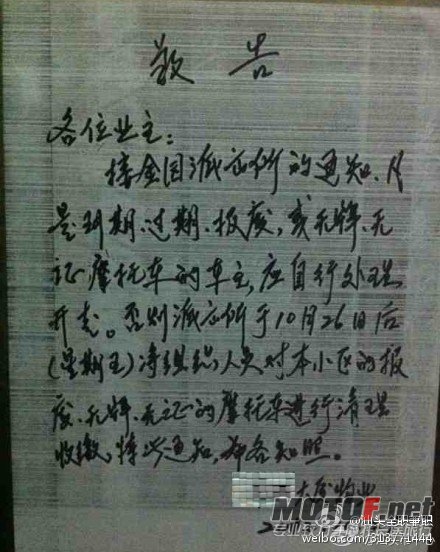 敬告
各位业主:
接金园派出所的通知、凡
是到期、过期、报废,或无牌、无
证摩托车的车主,应自行处理
开走。否则派出所于10月26日后
(星期五)将组织人员对本小区的报
废、无牌、无证的摩托车进行清理
收缴,特此通知,希各知照。
物业
MOTOF.net
@汕头全职兼职
weibo.com/313771444